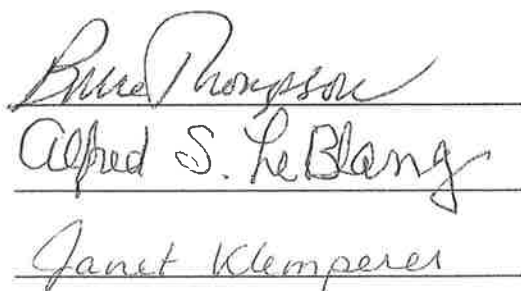 Bruce Thompson
Alfred S. LeBlang
Janet Klemperer